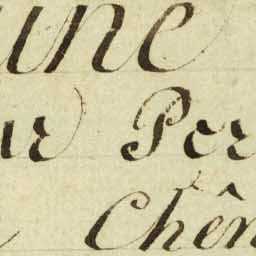 une
ur Per
Chên